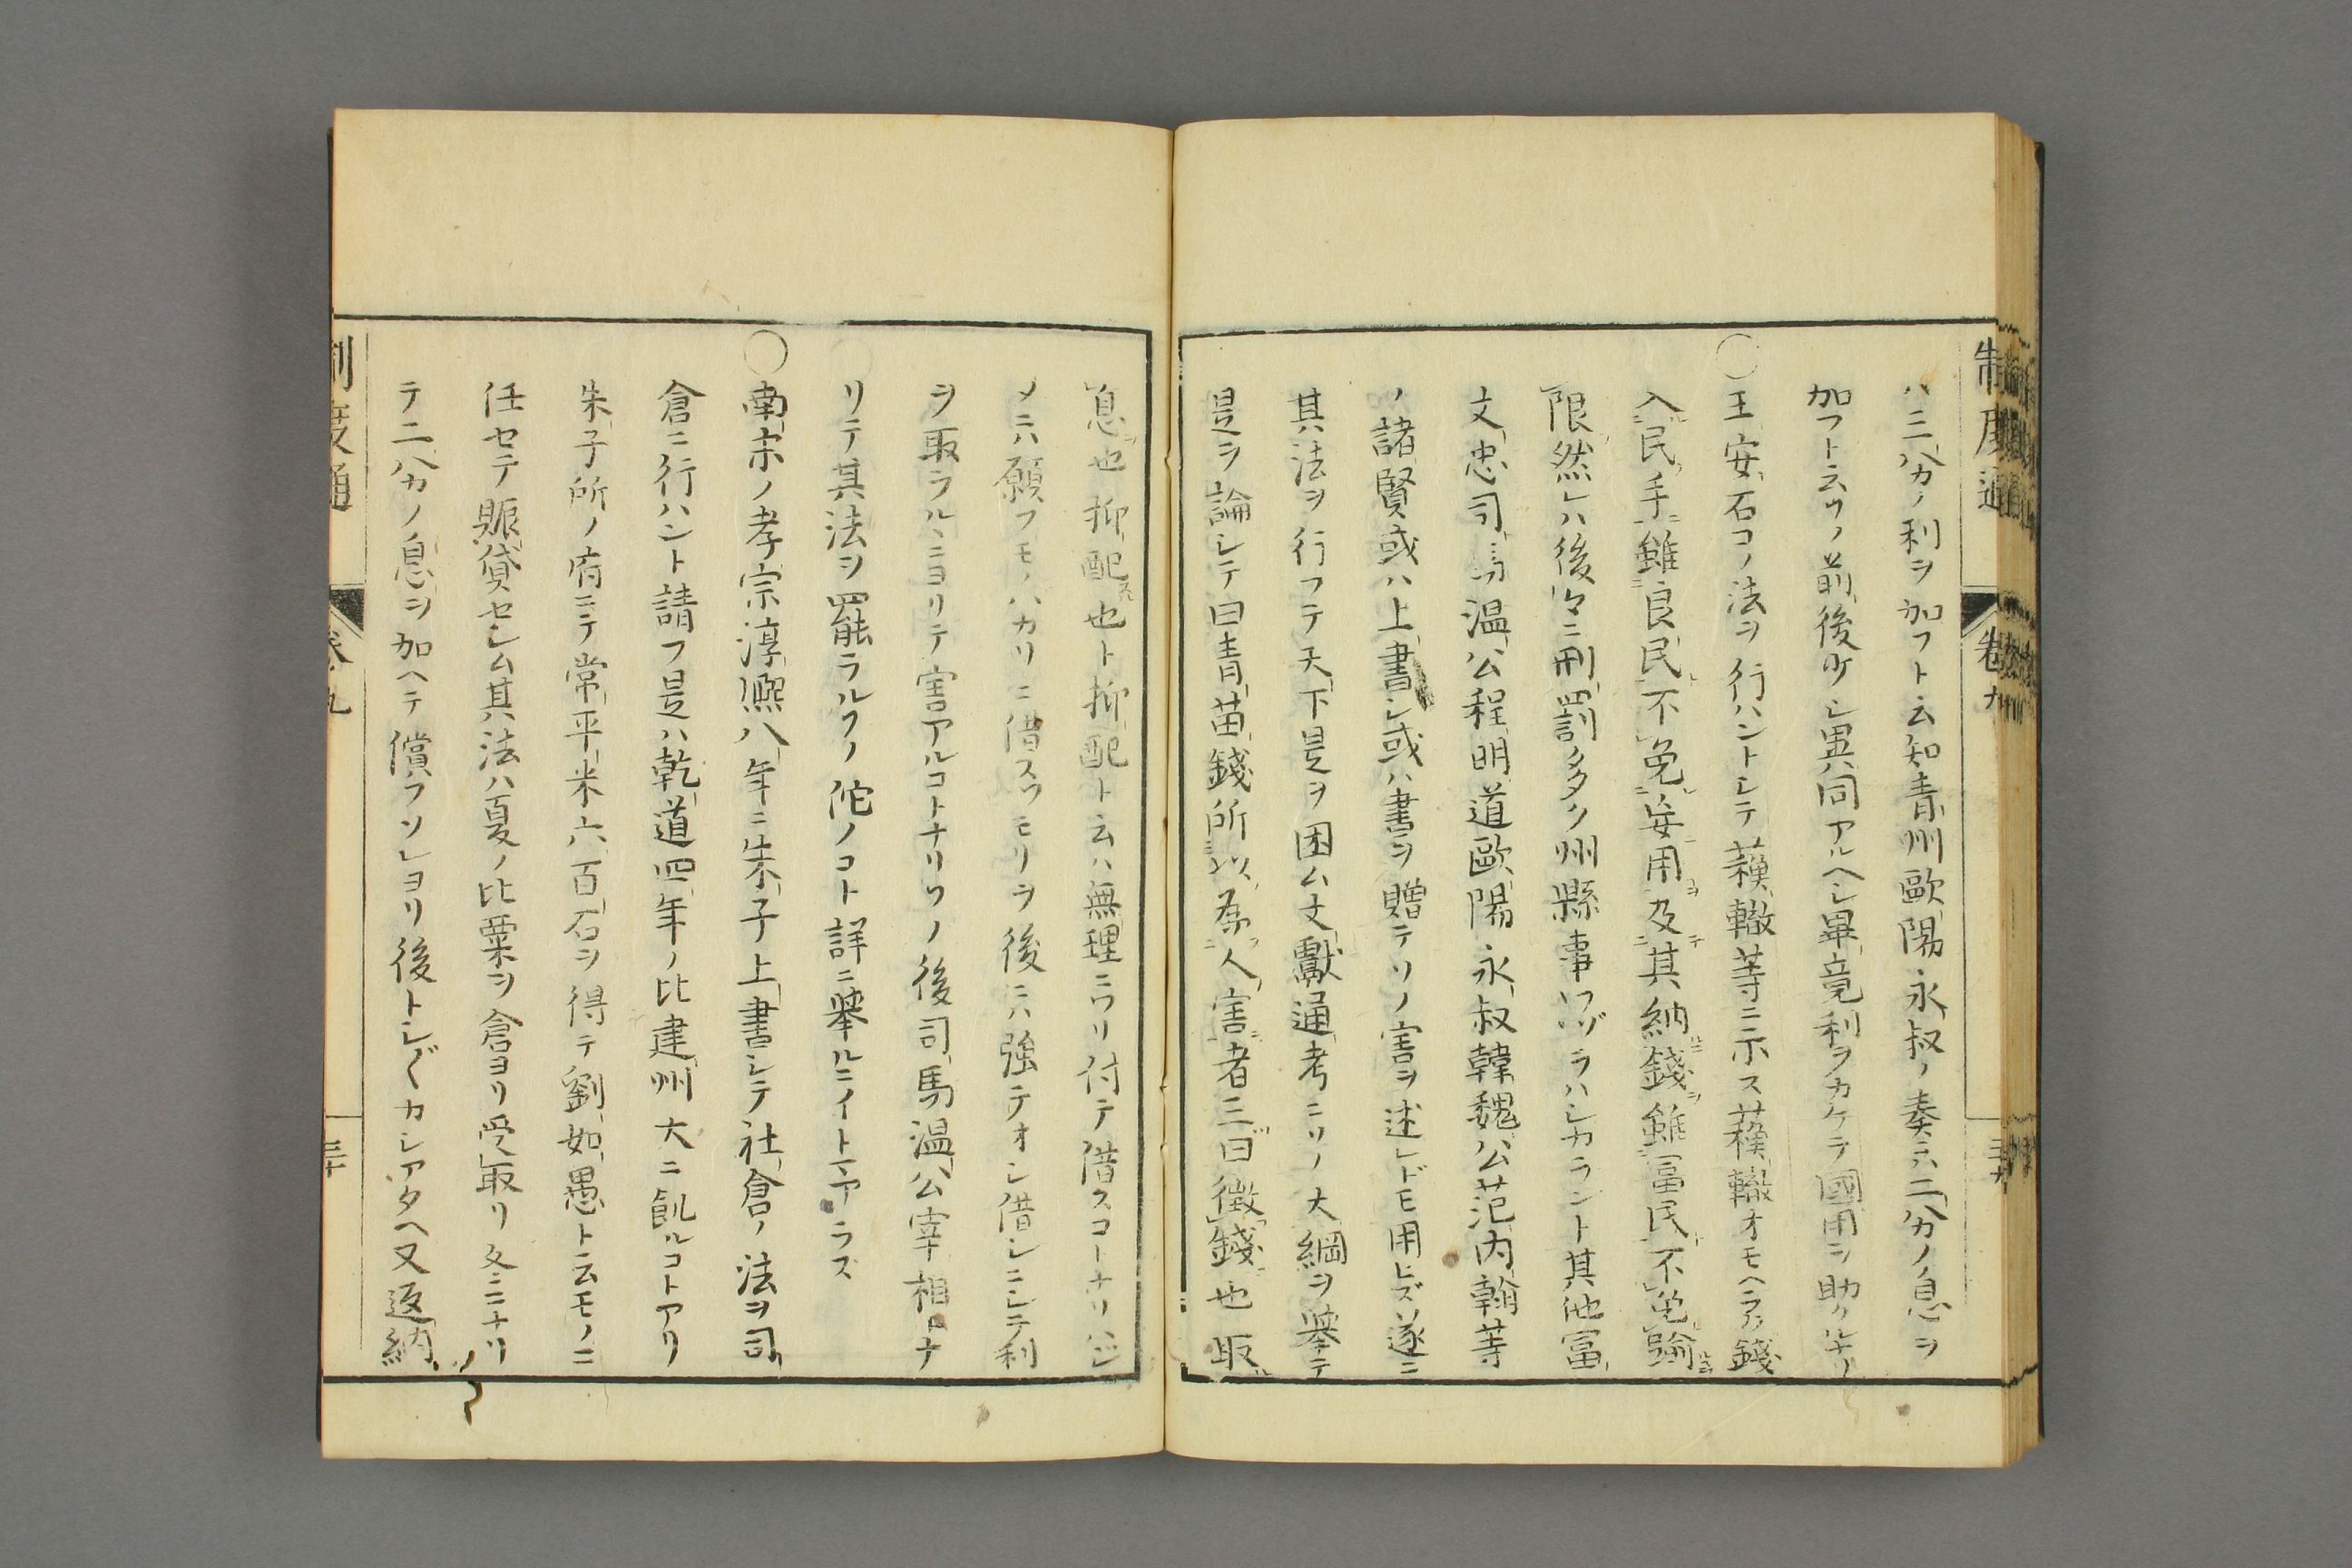 制度通 卷九
ハ三分ノ利ヲ加フト云知青州歐陽永叔ノ奏ニハ二分ノ息ヲ
加フト云ソノ前後少シ異同アルヘシ畢竟利ヲカケテ國用ヲ助クルナリ
○王安石コノ法ヲ行ハントシテ蘓轍等ニ示ス蘓轍オモヘラク錢
入民ノ手雖良民不免妄用及其納錢雖冨民不免踰
限然レハ後々ニ刑罰多ク州縣事ワヅラハシカラント其他冨
文忠司馬温公程明道歐陽永叔韓魏公范内翰等
ノ諸賢或ハ上書シ或ハ書ヲ贈テソノ害ヲ述レドモ用ヒズ遂ニ
其法ヲ行フテ天下是ヲ困ム文獻通考ニソノ大綱ヲ舉テ
是ヲ論シテ曰青苗錢所以為人害者三曰徴錢也取
息也抑配也ト抑配ト云ハ無理ニワリ付テ借スコトナリハジ
メニハ願フモノハカリニ借スツモリヲ後ニハ強テオシ借シニシテ利
ヲ取ラルヽニヨリテ害アルコトナリソノ後司馬温公宰相トナ
リテ其法ヲ罷ラルソノ佗ノコト詳ニ舉ルニイトマアラズ
○南宋ノ孝宗淳熈八年ニ朱子上書シテ社倉ノ法ヲ司
倉ニ行ハント請フ是ハ乾道四年ノ比建州大ニ飢ルコトアリ
朱子所ノ府ニテ常平米六百石ヲ得テ劉如愚ト云モノニ
任セテ賑貸セシム其法ハ夏ノ比粟ヲ倉ヨリ受取リ冬ニナリ
テ二分ノ息ヲ加ヘテ償フソレヨリ後トシ〲カシアタヘ又返納
制度通 卷九 三十